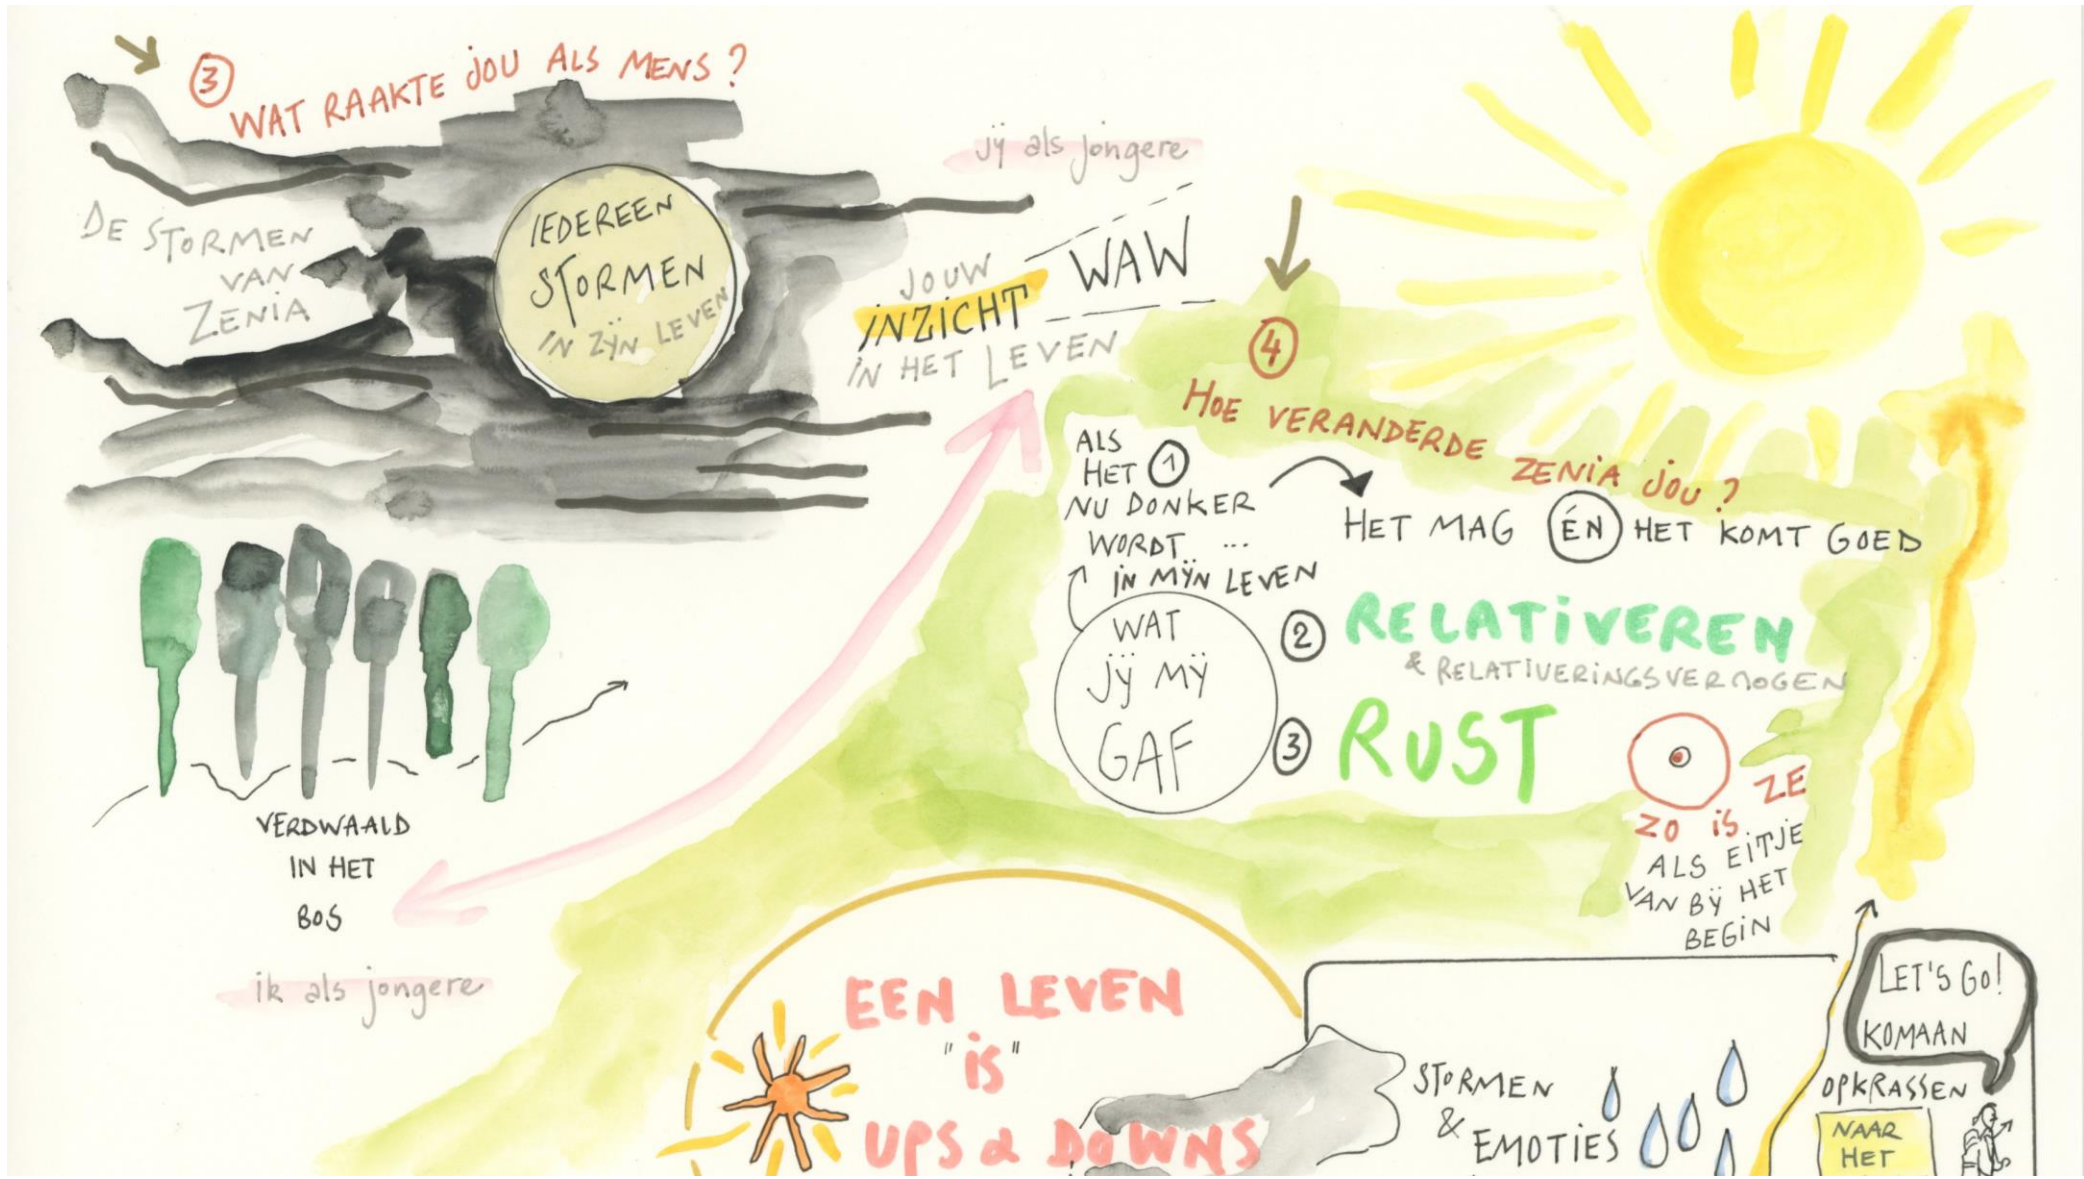 3
WAT RAAKTE JOU ALS MENS?
DE STORMEN
VAN
ZENIA
IEDEREEN
STORMEN
IN ZIJN LEVEN
jij als jongere
JOUW
INZICHT
IN HET LEVEN
WAW
VERDWAALD
IN HET
BOS
ik als jongere
4
HOE VERANDERDE ZENIA JOU?
ALS
HET 1
NU DONKER
WORDT ...
IN MIJN LEVEN
HET MAG ÉN HET KOMT GOED
WAT
JIJ MIJ
GAF
2 RELATIVEREN
& RELATIVERINGSVERMOGEN
3 RUST
ZO IS ZE
ALS EITJE
VAN BIJ HET
BEGIN
EEN LEVEN
"IS"
UPS & DOWNS
STORMEN
&
EMOTIES
LET'S GO!
KOMAAN
OPKRASSEN
NAAR
HET